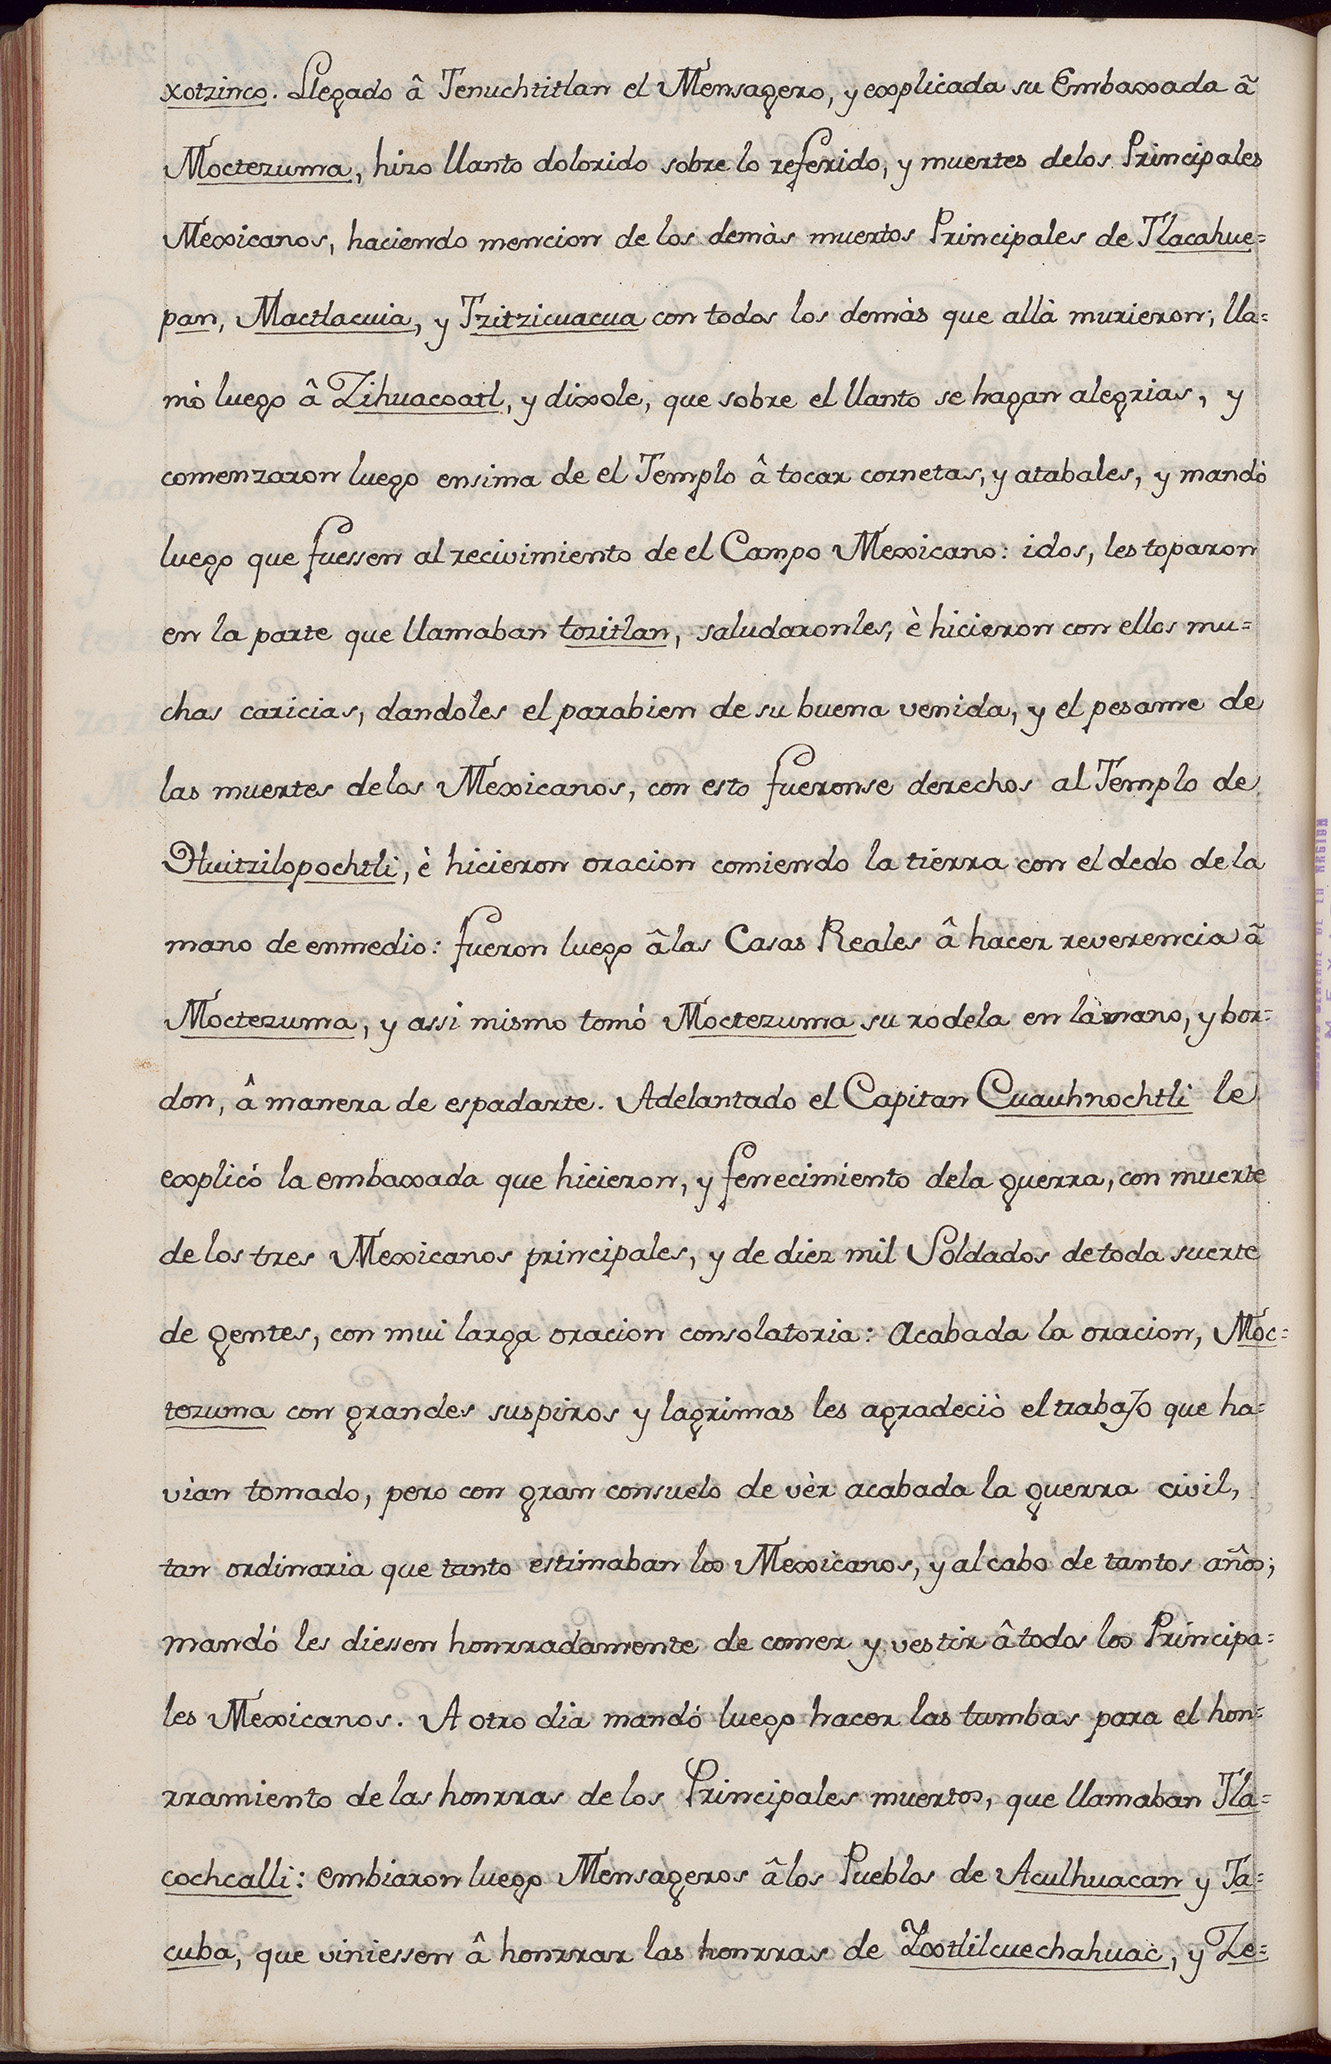 xotzinco. Llegado â Tenuchtitlan el Mensagero, y explicada su Embaxada â
Moctezuma, hizo llanto dolorido sobre lo referido, y muertes delos Principales
Mexicanos, haciendo mencion de los demàs muertos Principales de Tlacahue=
pan, Mactlacuia, y Tzitzicuacua con todos los demàs que allà murieron; lla=
mò luego â Zihuacoatl, y dixole, que sobre el llanto se hagan alegrias, y
comenzaron luego ensima de el Templo â tocar cornetas, y atabales, y mandò
luego que fuessen al recivimiento de el Campo Mexicano: idos, les toparon
en la parte que llamaban tozitlan, saludaronles, è hicieron con ellos mu=
chas caricias, dandoles el parabien de su buena venida, y el pesame de
las muertes delos Mexicanos, con esto fueronse derechos al Templo de
Huitzilopochtli, è hicieron oracion comiendo la tierra con el dedo de la
mano de enmedio: fueron luego âlas Casas Reales â hacer reverencia â
Moctezuma, y assi mismo tomó Moctezuma su rodela en la mano, y bor=
don, â manera de espadarte. Adelantado el Capitan Cuauhnochtli le
explicó la embaxada que hicieron, y fenecimiento dela guerra, con muerte
de los tres Mexicanos principales, y de diez mil Soldados de toda suerte
de gentes, con mui larga oracion consolatoria: Acabada la oracion, Moc=
tezuma con grandes suspiros y lagrimas les agradeciò el trabajo que ha=
vian tomado, pero con gran consuelo de vèr acabada la guerra civil,
tan ordinaria que tanto estimaban los Mexicanos, y al cabo de tantos años;
mandó les diessen honrradamente de comer y vestir âtodos los Principa=
les Mexicanos. A otro dia mandó luego hacer las tumbas para el hon=
rramiento de las honrras de los Principales muertos, que llamaban Tla=
cochcalli: embiaron luego Mensageros âlos Pueblos de Aculhuacan y Ta=
cuba, que viniessen â honrrar las honrras de Ixtlilcuechahuac, y Ze=